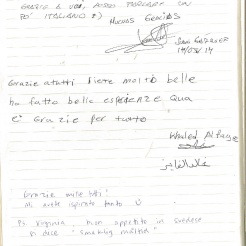 GRAZIE A VOI, POSSO PARLARE UN
PO' ITALIANO :)
Muchas Gracias
14/05/14
Grazie a tutti siete molto belle
ho fatto belle esperienze qua
e Grazie per tutto
Khaled
Grazie mille tutti!
Mi avete ispirato tanto
Ps Virginia, buon appetito in svedese
si dice "smaklig måltid"